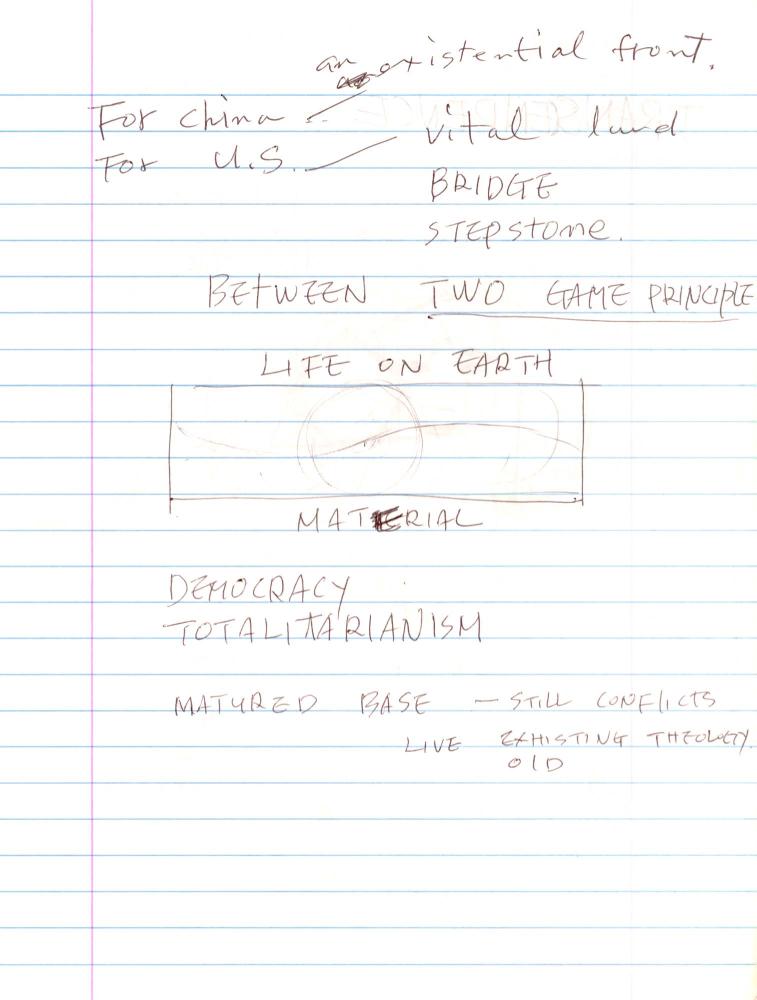 an existential front.
For China
For U.S. vital land
BRIDGE
STEPSTONE.
BETWEEN TWO GAME PRINCIPLE
LIFE ON EARTH
MATERIAL
DEMOCRACY
TOTALITARIANISM
MATURED BASE — STILL CONFLICTS
LIVE EXHISTING THEOLOGY.
OLD